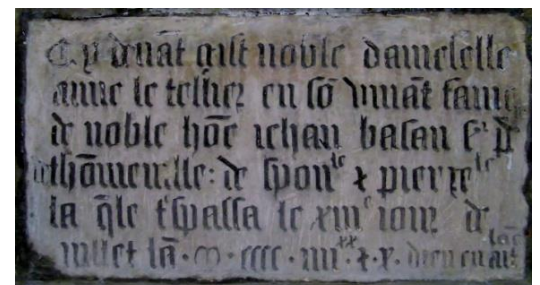 Cy devāt gist noble dameselle
anne le tellier en sō vivāt fame
de noble hōe iehan basan s^r d
thomeville: de spon^le & pierre^le
la q̄le t'spassa le xiii^e iour de
iullet lā · m · cccc · iiii^xx · & · x · dieu en ait lāe